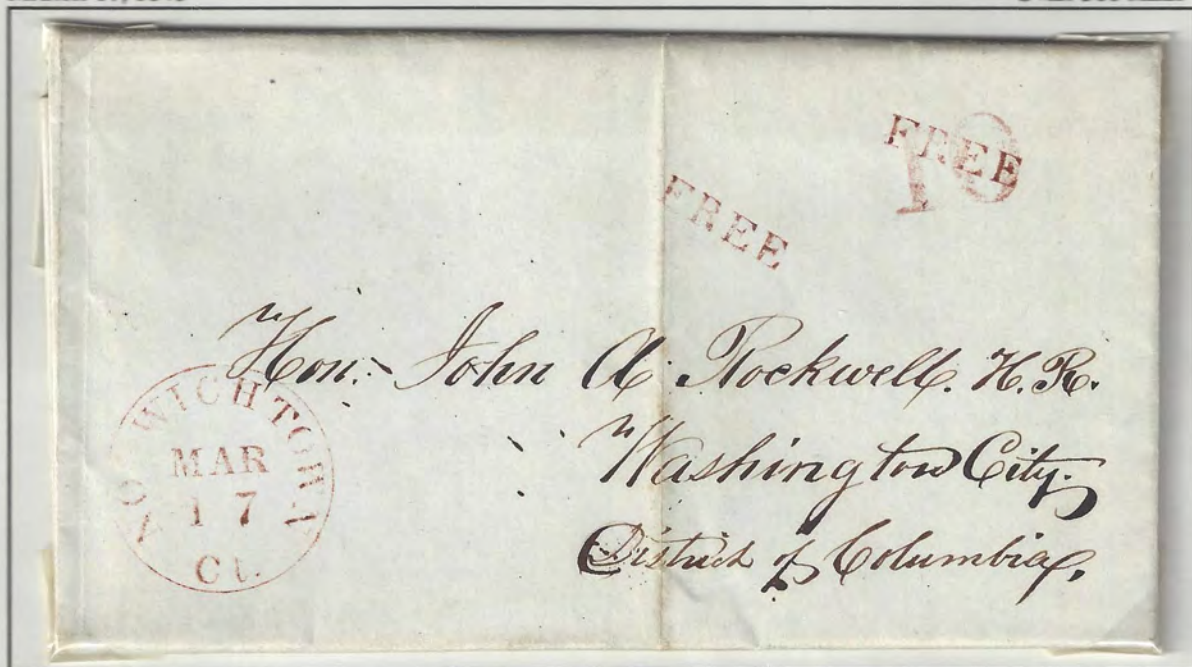 FREE
10
FREE
Hon. John A. Rockwell. H. R.
Washington City.
District of Columbia.
NORWICHTOWN
MAR
17
Ct.